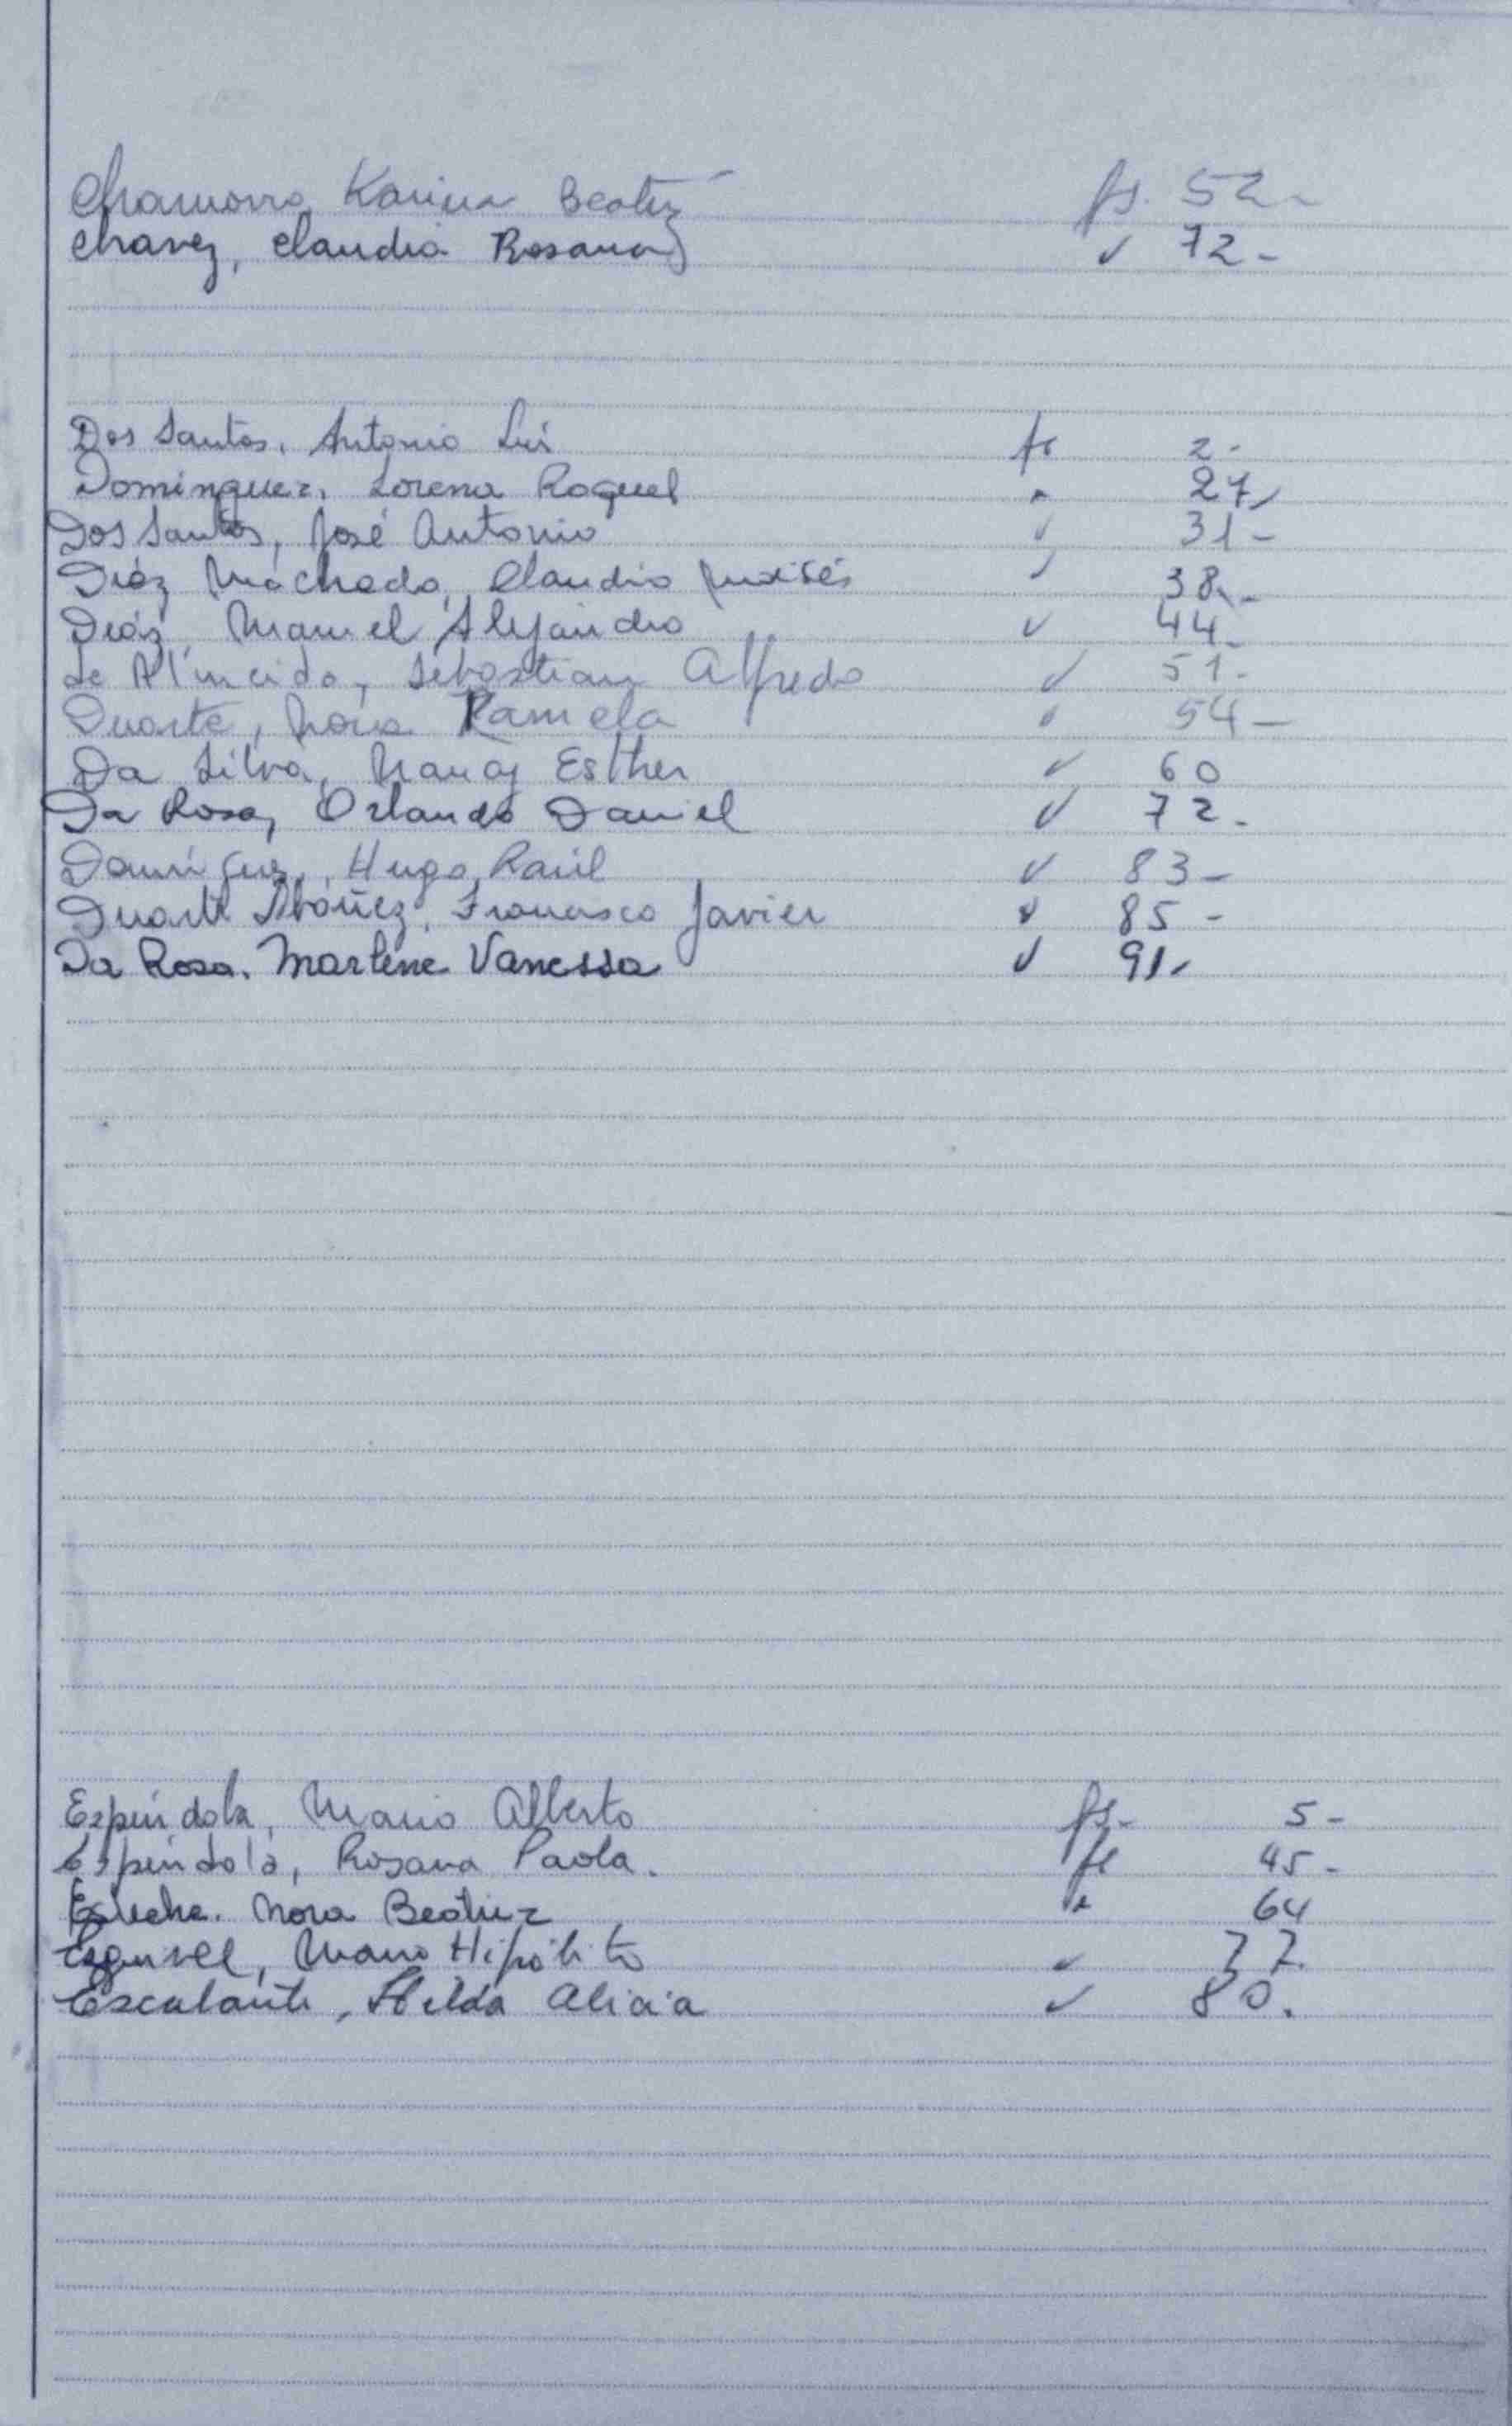 Chamorro, Karina Beatriz fs. 52-
Chavez, Claudia Rosana ✓ 72-
Dos Santos, Antonio Luis fs 2-
Dominguez, Lorena Raquel " 27-
Dos Santos, José Antonio ✓ 31-
Diáz Machado, Claudio ✓ 38-
Diáz, Manuel Alejandro ✓ 44-
de Almeida, Sebastian Alfredo ✓ 51-
Duarte, Ramela ✓ 54-
Da Silva, Nancy Esther ✓ 60
Da Rosa, Orlando Daniel ✓ 72-
Domínguez, Hugo Raúl ✓ 83-
Duarte Ibáñez, Francisco Javier ✓ 85-
Da Rosa, Marlene Vanessa ✓ 91-
Espíndola, Mario Alberto fs- 5-
Espíndola, Rosana Paola. fs 45-
Nora Beatriz " 64
Esquivel, Mario Hipólito ✓ 77.
Escalante, Hilda Alicia ✓ 80.